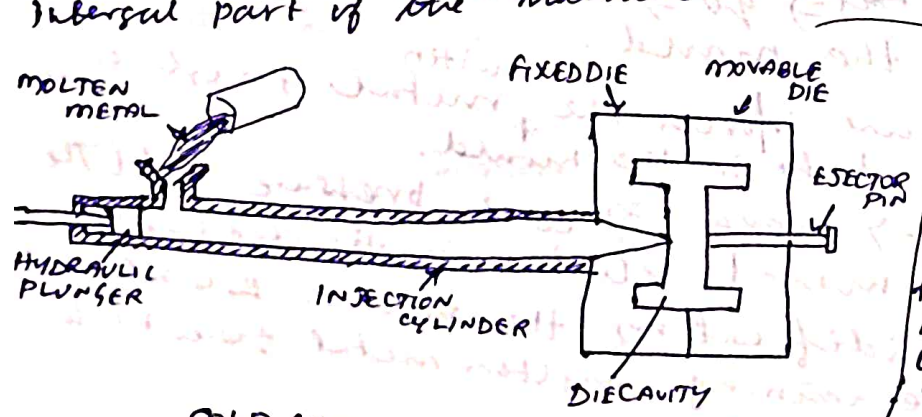 Intergal part of the
MOLTEN
METAL
FIXED DIE
MOVABLE
DIE
EJECTOR
PIN
HYDRAULIC
PLUNGER
INJECTION
CYLINDER
DIE CAVITY